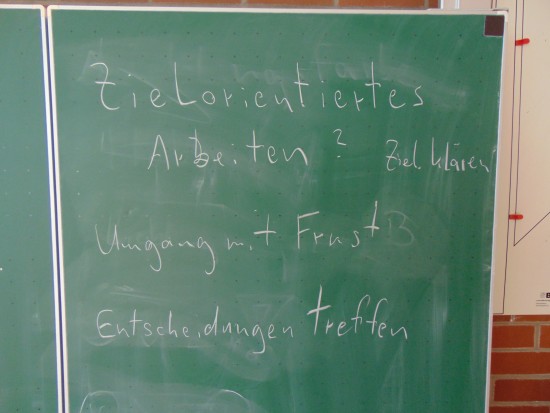 Zielorientiertes
Arbeiten ? Ziel klären
Umgang mit Frust
Entscheidungen treffen